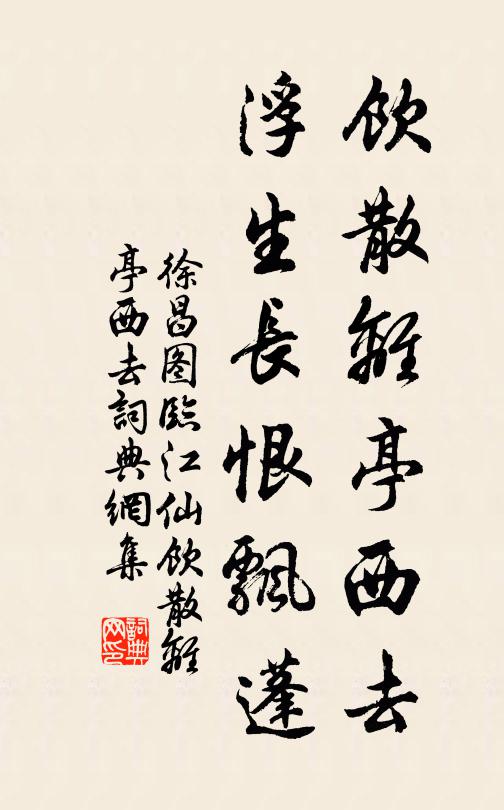 飲散離亭西去
浮生長恨飄蓬
徐昌图臨江仙飲散離
亭西去詞典網集
詞典
网印